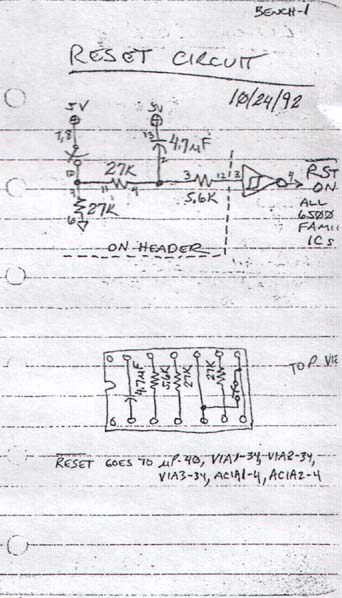 BENCH-1
RESET CIRCUIT
10/24/92
5V
5V
7,8
13
4.7µF
2
27K
11
4
3
5.6K
12
13
4
RST
ON
ALL
6500
FAMIL
ICs
27K
6
ON HEADER
4.7µF
5.6K
27K
27K
TOP VIE
RESET GOES TO µP-40, VIA1-34, VIA2-34,
VIA3-34, ACIA1-4, ACIA2-4